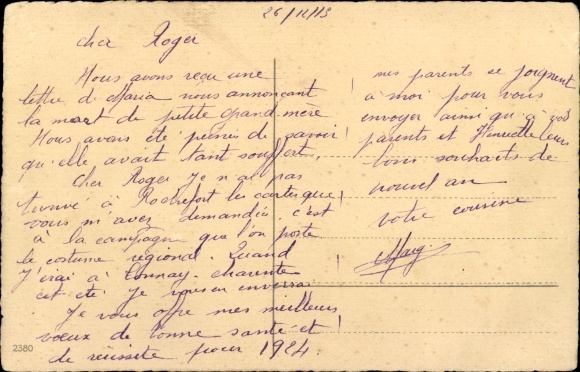 26/12/13
cher Roger
Nous avons reçu une
lettre d Maria nous annonçant
la mort de petite grand mère
Nous avons été peinés de savoir
qu'elle avait tant souffert.
Cher Roger je n ai pas
trouvé à Rochefort les cartes que
vous m'avez demandées. c'est
à la campagne que l'on porte
le costume régional. Quand
j'irai à Tonnay-charente
cet été je vous en enverrai
Je vous offre mes meilleurs
voeux de bonne santé et
de réussite pour 1924.
2380
mes parents se joignent
à moi pour vous
envoyer ainsi qu'à vos
parents et Henriette leurs
bons souhaits de
nouvel an
votre cousine